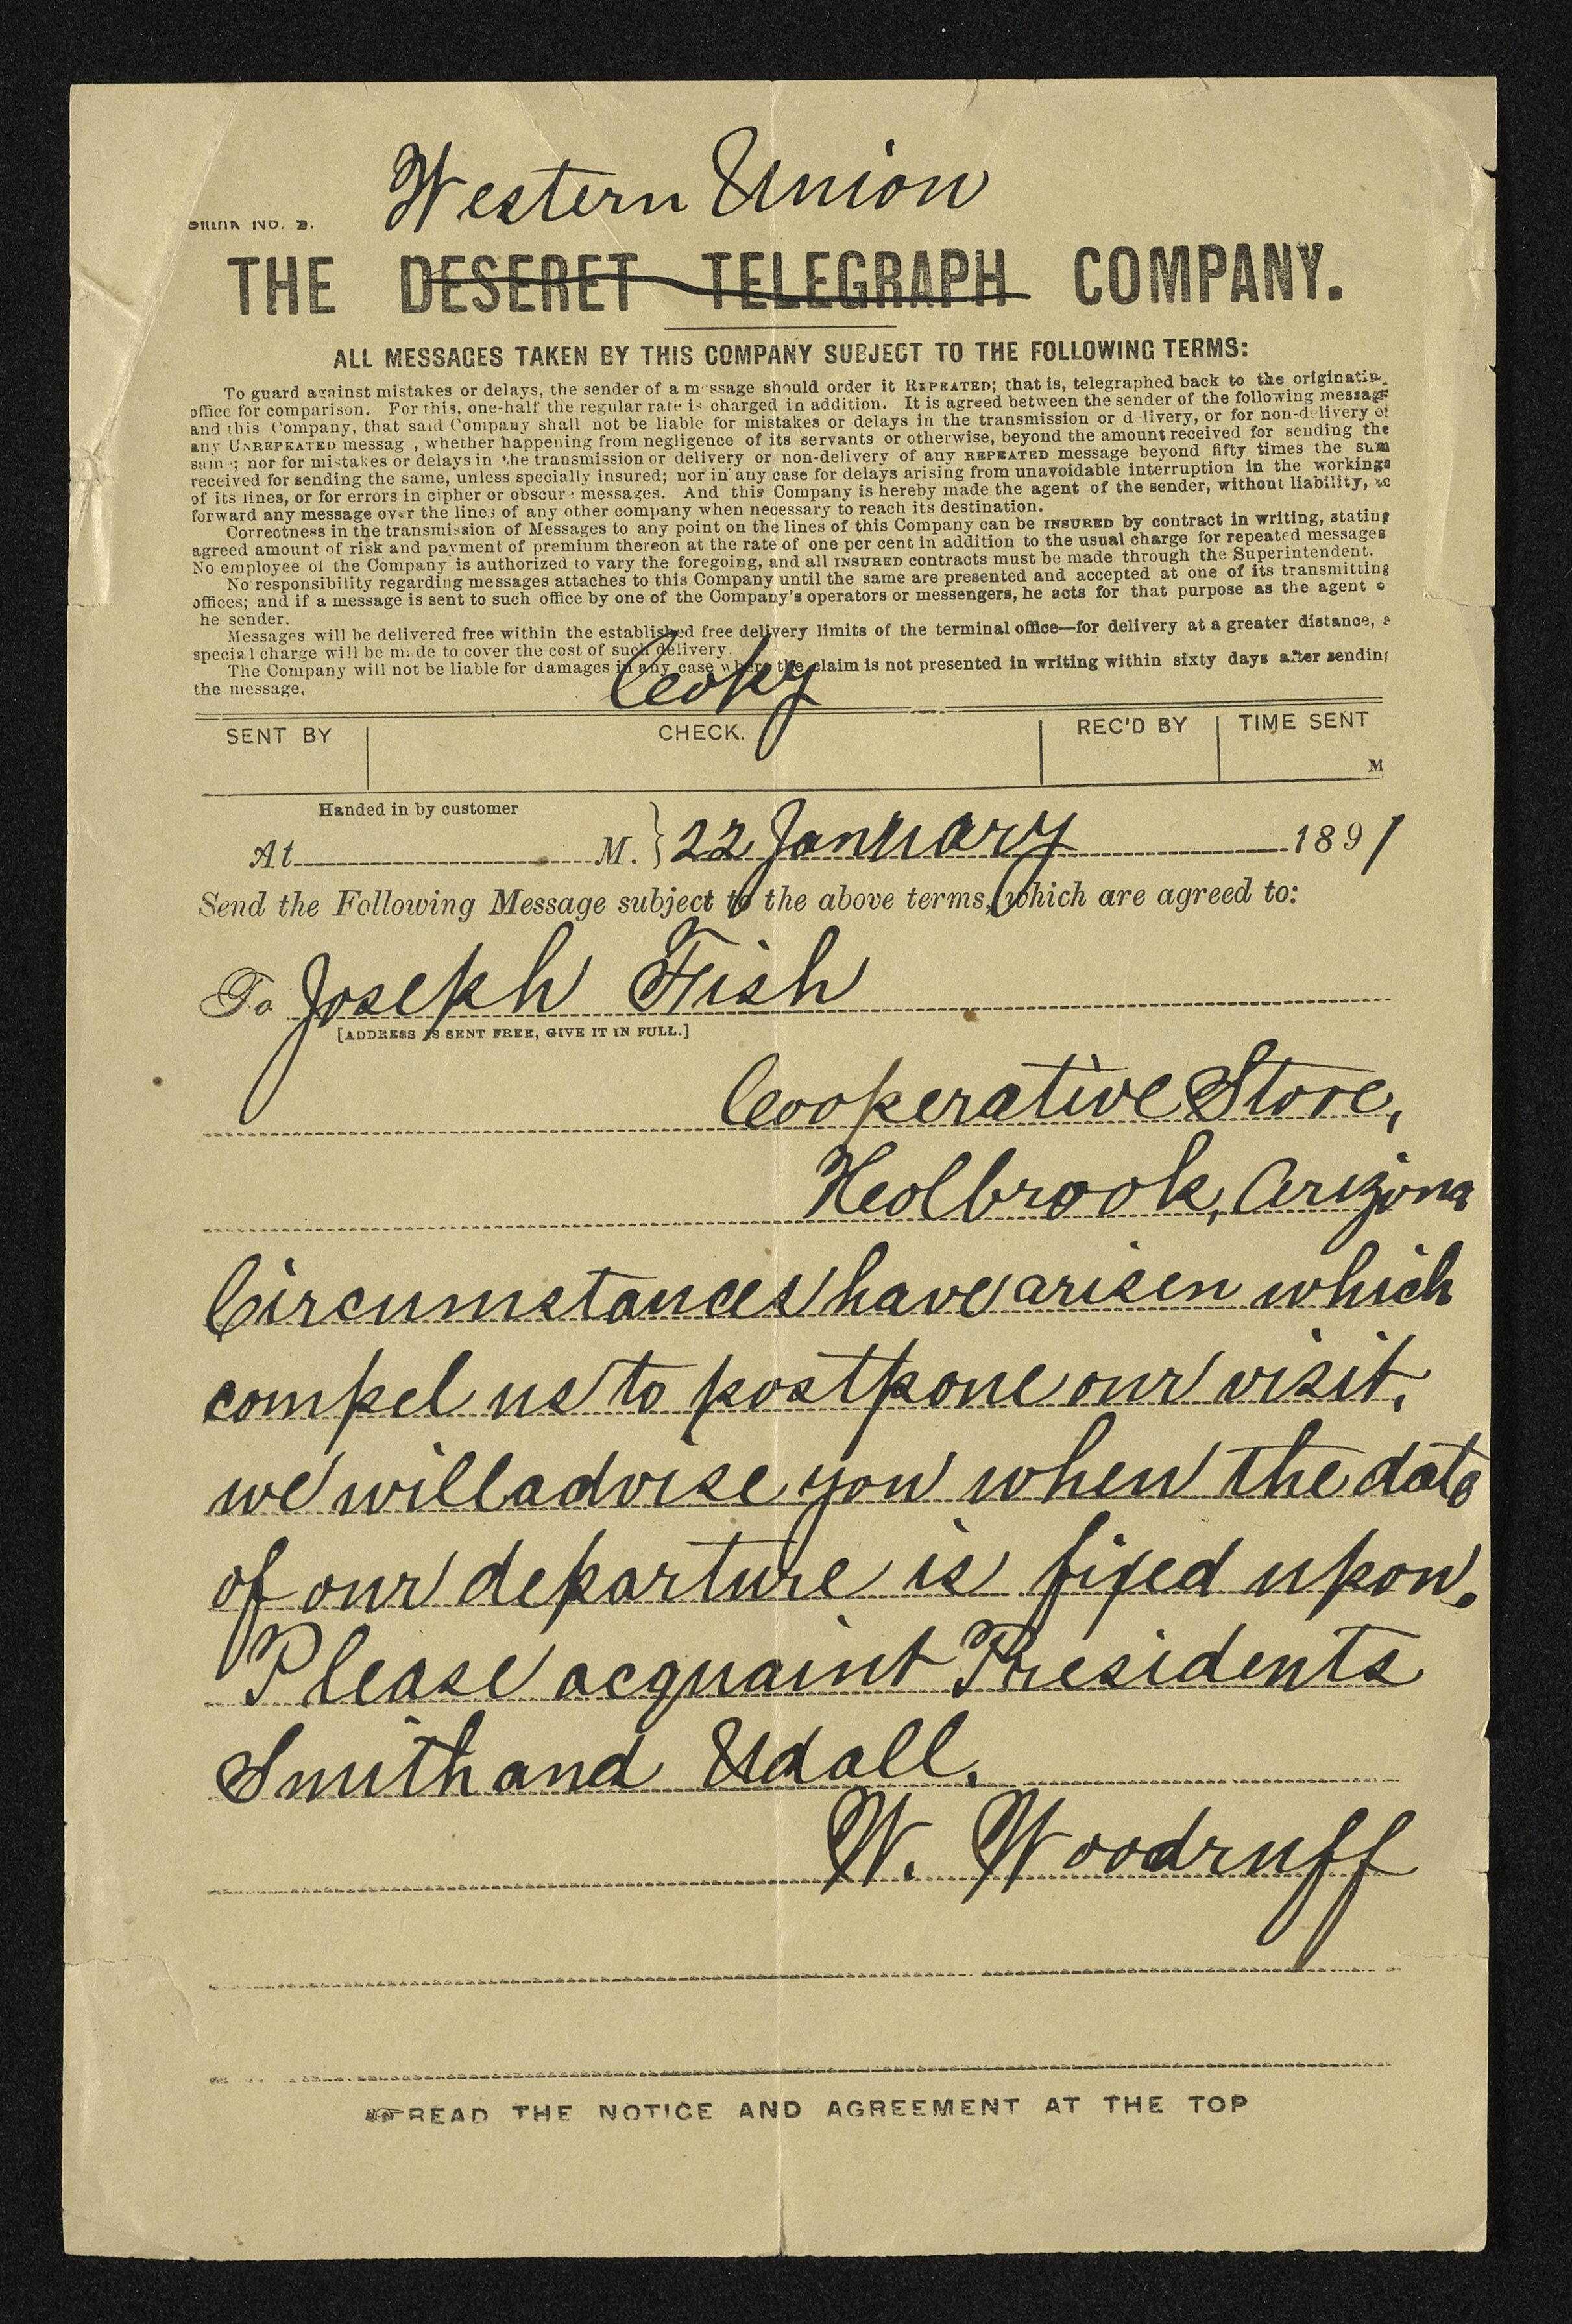 Western Union
Blank No. 2.
THE DESERET TELEGRAPH COMPANY.
ALL MESSAGES TAKEN BY THIS COMPANY SUBJECT TO THE FOLLOWING TERMS:
To guard against mistakes or delays, the sender of a message should order it REPEATED; that is, telegraphed back to the originatin
office for comparison. For this, one-half the regular rate is charged in addition. It is agreed between the sender of the following message
and this Company, that said Company shall not be liable for mistakes or delays in the transmission or d livery, or for non-d livery of
any UNREPEATED messag , whether happening from negligence of its servants or otherwise, beyond the amount received for sending the
sam ; nor for mistakes or delays in the transmission or delivery or non-delivery of any REPEATED message beyond fifty times the sum
received for sending the same, unless specially insured; nor in any case for delays arising from unavoidable interruption in the workings
of its lines, or for errors in cipher or obscure messages. And this Company is hereby made the agent of the sender, without liability,
forward any message over the lines of any other company when necessary to reach its destination.
Correctness in the transmission of Messages to any point on the lines of this Company can be INSURED by contract in writing, stating
agreed amount of risk and payment of premium thereon at the rate of one per cent in addition to the usual charge for repeated messages
No employee of the Company is authorized to vary the foregoing, and all INSURED contracts must be made through the Superintendent.
No responsibility regarding messages attaches to this Company until the same are presented and accepted at one of its transmitting
offices; and if a message is sent to such office by one of the Company's operators or messengers, he acts for that purpose as the agent o
he sender.
Messages will be delivered free within the established free delivery limits of the terminal office—for delivery at a greater distance, a
special charge will be made to cover the cost of such delivery.
The Company will not be liable for damages in any case where the claim is not presented in writing within sixty days after sending
the message.
Copy
SENT BY CHECK. REC'D BY TIME SENT
M
Handed in by customer
At M. } 22 January 1891
Send the Following Message subject to the above terms, which are agreed to:
To Joseph Fish
[ADDRESS IS SENT FREE, GIVE IT IN FULL.]
Cooperative Store,
Holbrook, Arizona
Circumstances have arisen which
compel us to postpone our visit,
we will advise you when the date
of our departure is fixed upon.
Please acquaint Presidents
Smith and Udall.
W. Woodruff
☞READ THE NOTICE AND AGREEMENT AT THE TOP